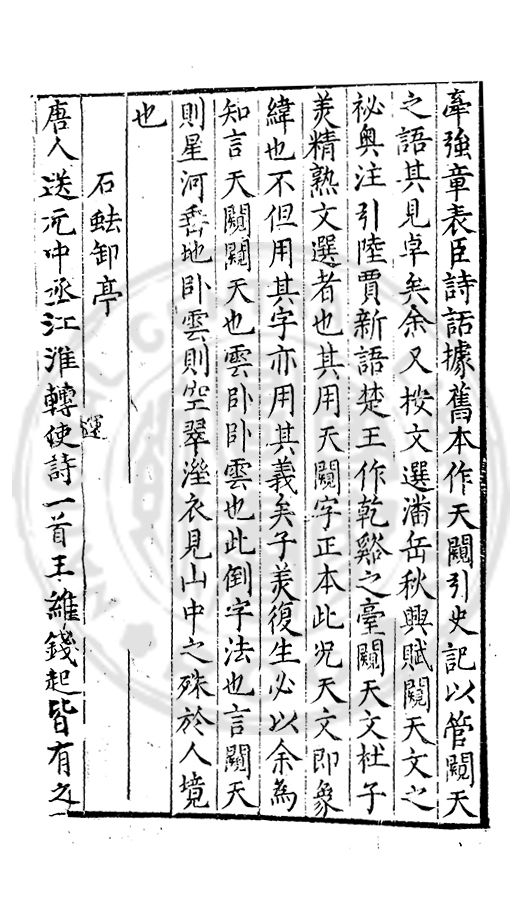 牽強章表臣詩話據舊本作天闚引史記以管闚天
之語其見卓矣余又按文選潘岳秋興賦闚天文之
祕奧注引陸賈新語楚王作乾谿之臺闚天文杜子
羙精熟文選者也其用天闚字正本此況天文即象
緯也不但用其字亦用其義矣子羙復生必以余為
知言天闚闚天也雲卧卧雲也此倒字法也言闚天
則星河垂地卧雲則空翠溼衣見山中之殊於人境
也
石䱜卸亭
唐人送元中丞江淮轉運使詩一首王維錢起皆有之